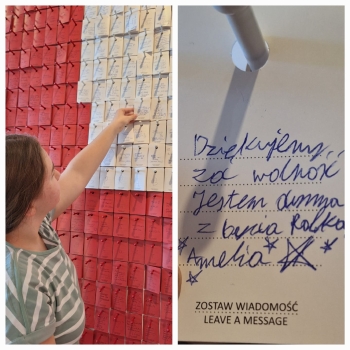 Dziękujemy..
za wolność
Jestem dumna
z bycia Polką
Amelia
ZOSTAW WIADOMOŚĆ
LEAVE A MESSAGE